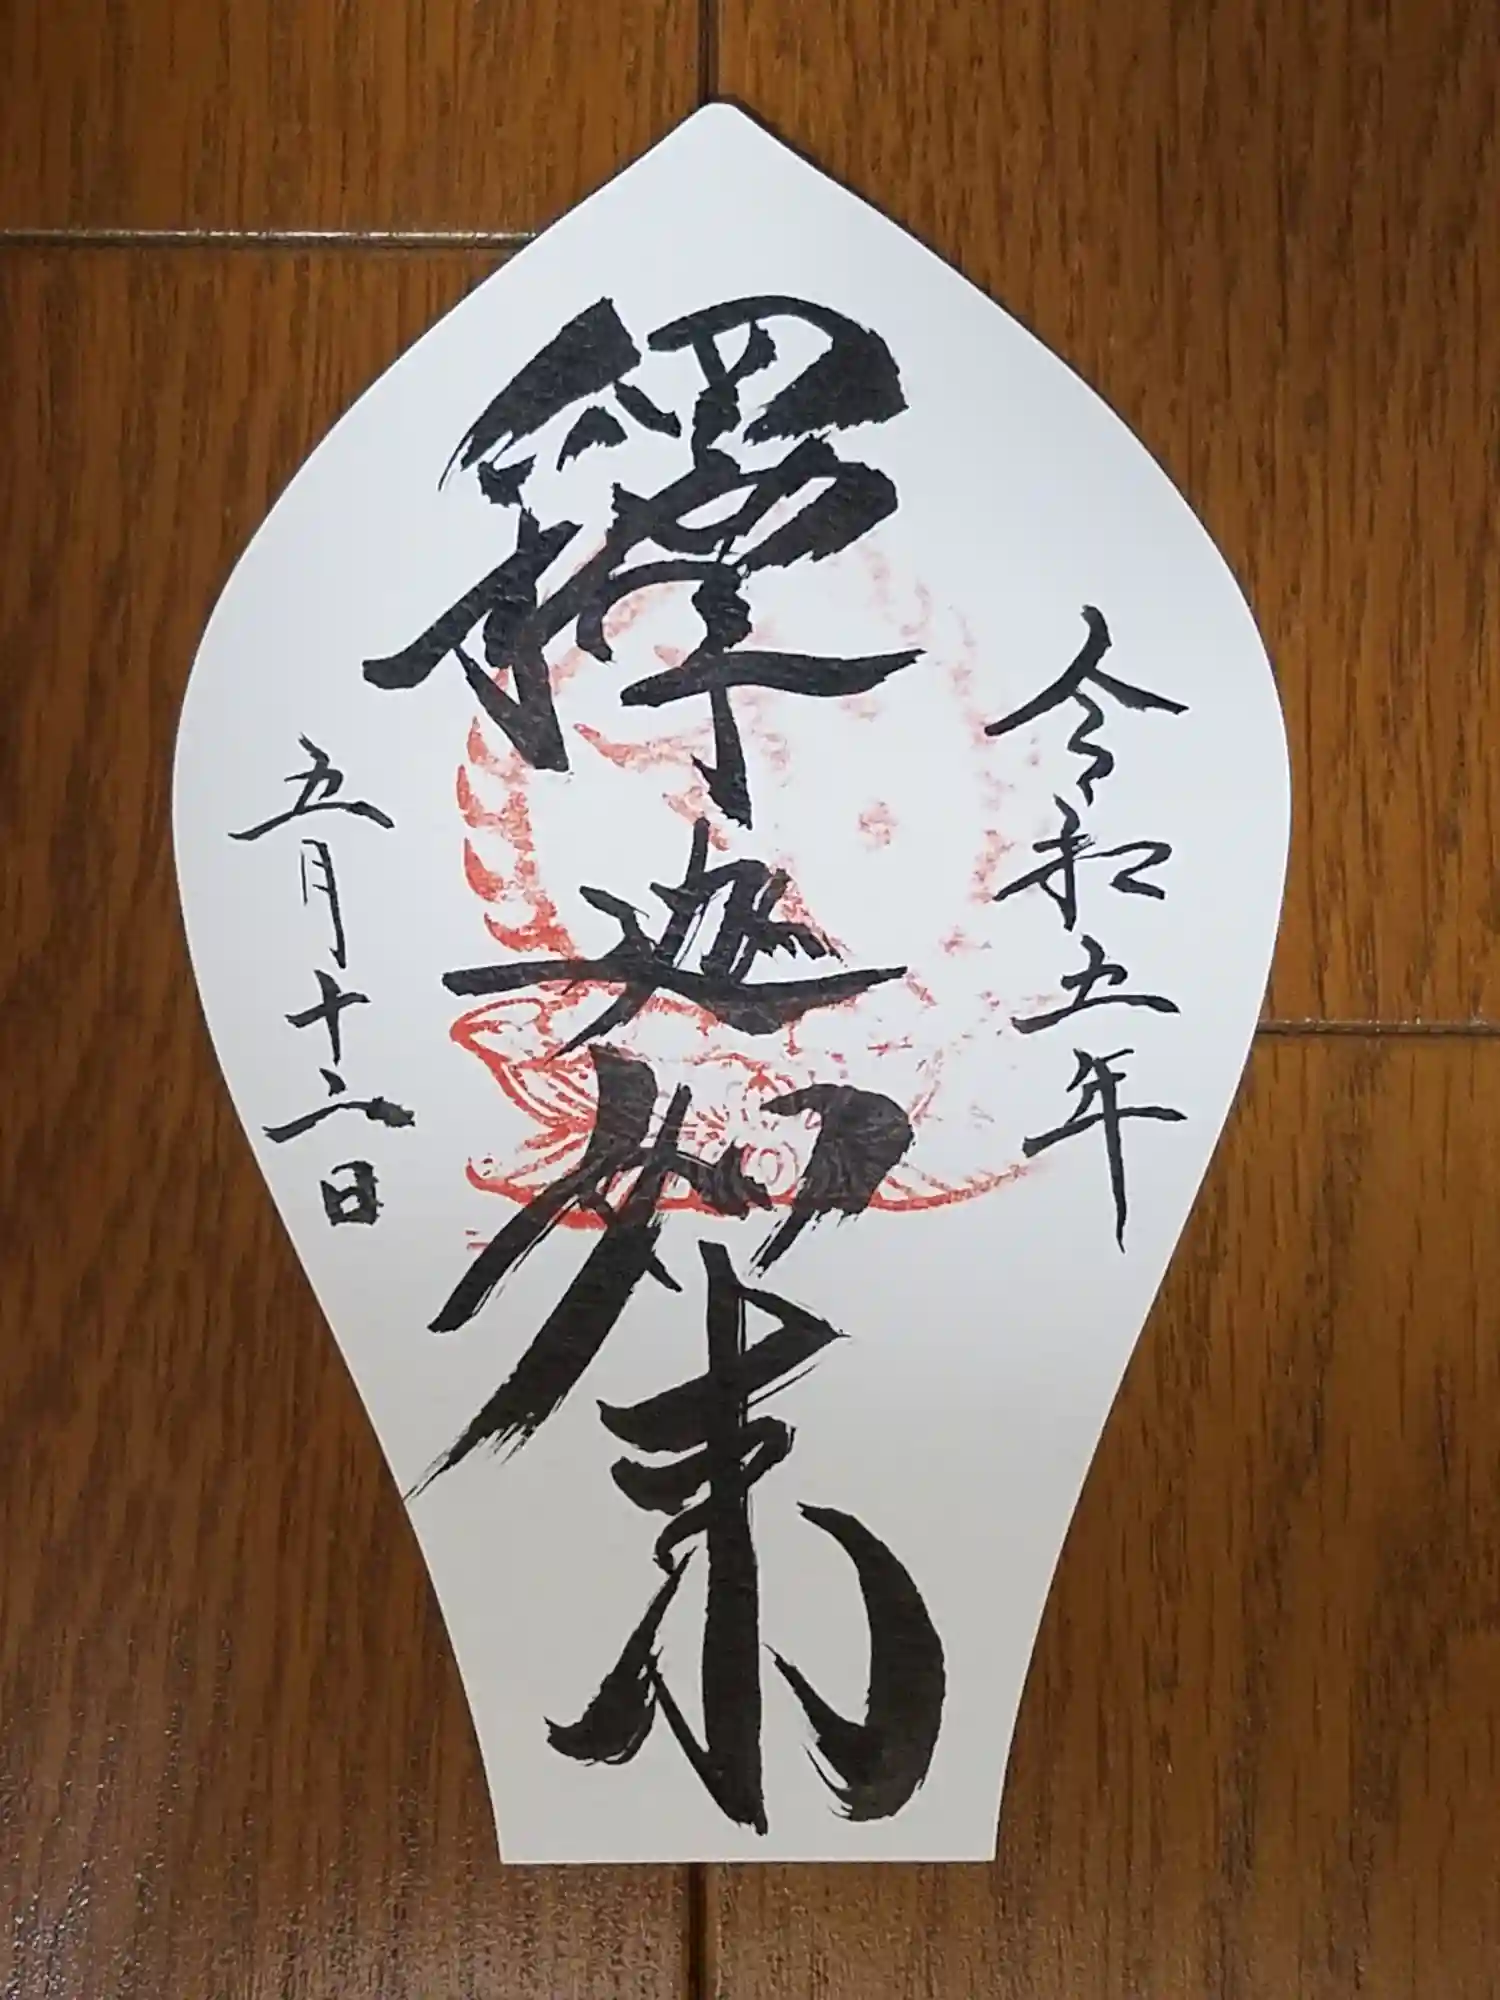 令和五年
釋迦如来
五月十二日